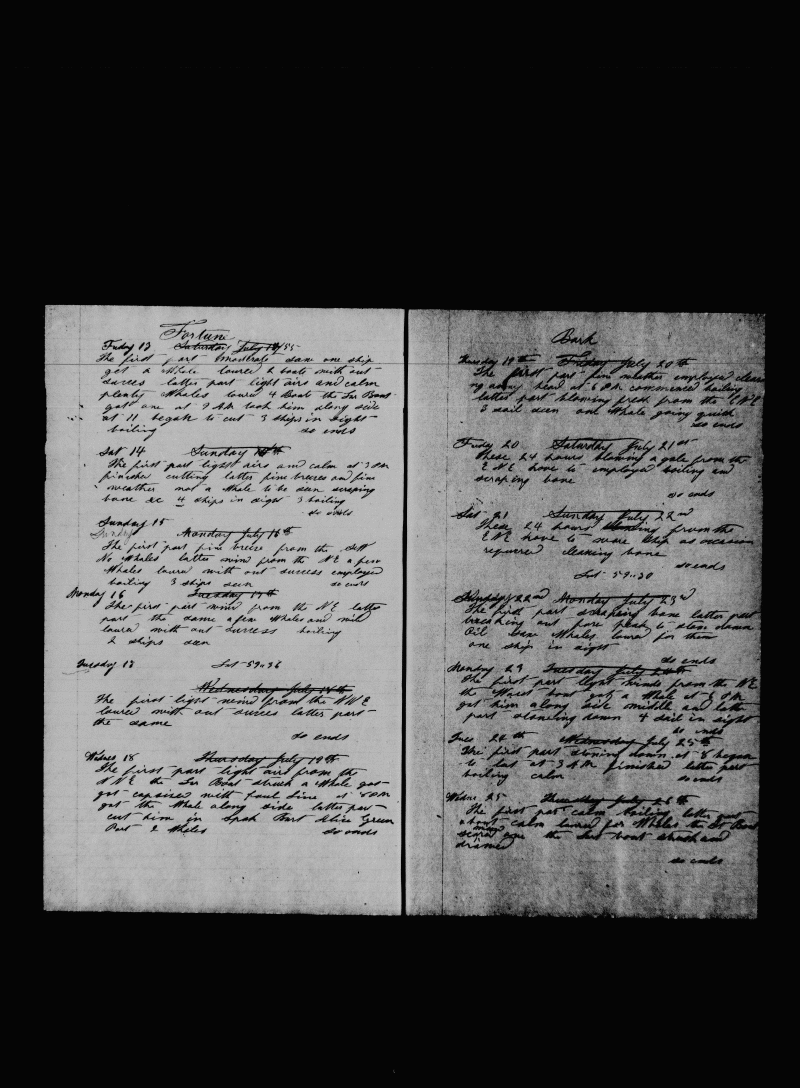 Fortune
Friday 13 Saturday July 14/55
The first part moderate saw one ship
get a Whale lowred 2 boats with out
succes latter part light airs and calm
plenty Whales lowred 4 Boats the Lar Boat
got one at 9 AM took him along side
at 11 began to cut 3 ships in sight
boiling so ends
Sat 14 Sunday 15th
The first part light airs and calm at 3 PM
finished cutting latter fine breeze and fine
weather not a Whale to be seen scraping
bone &c 4 ships in sight 3 boiling
so ends
Sunday 15
Monday July 16th
The first part fine breeze from the
No Whales latter wind from the NE a few
Whales lowrd with out success employed
boiling 3 ships seen so ends
Monday 16 Tuesday 17th
The first part wind from the NE latter
part the same a few Whales and wild
lowrd with out Success boiling
2 ships seen
Tuesday 17 Lat 59.. 36
Wednesday July 18th
The first light wind from the NNE
lowred with out succes latter part
the same
so ends
Wednes 18 Thursday July 19th
The first part light airs from the
NNE the Lar Boat struck a Whale got
got capsized with foul Line at 8 PM
got the Whale along side latter part
cut him in Spoke Bart Alice
Port 2 Whales so ends
Bark
Thursday 19th Friday July 20th
The first part fine weather employed clear
ng away head at 6 PM commenced boiling
latter part blowing fresh from the ENE
3 sail seen one Whale going quick
so ends
Friday 20 Saturday July 21st
These 24 hours blowing a gale from the
ENE hove to employed boiling and
scraping bone
so ends
Sat 21 Sunday July 22nd
These 24 hours blowing from the
ENE hove to ware Ship as occasion
required cleaning bone
so ends
Lat 59..30
Sunday 22nd Monday July 23rd
The first part scraping bone latter part
breaking out fore peak to stow down
Oil saw Whales lowrd for them
one ship in sight
so ends
Monday 23 Tuesday July 24th
The first part light winds from the NE
the Waist boat got a Whale at 6 PM
got him along side middle and latter
part stowing down 4 sail in sight
so ends
Tues 24th Wednesday July 25th
The first part stowing down at 8 began
to cut at 3 AM finished latter part
boiling calm so ends
Wednes 25 Thursday July 26th
The first part calm boiling latter part
calm lowrd for Whales the St Boat
one the Lar boat struck and
drawed
so ends